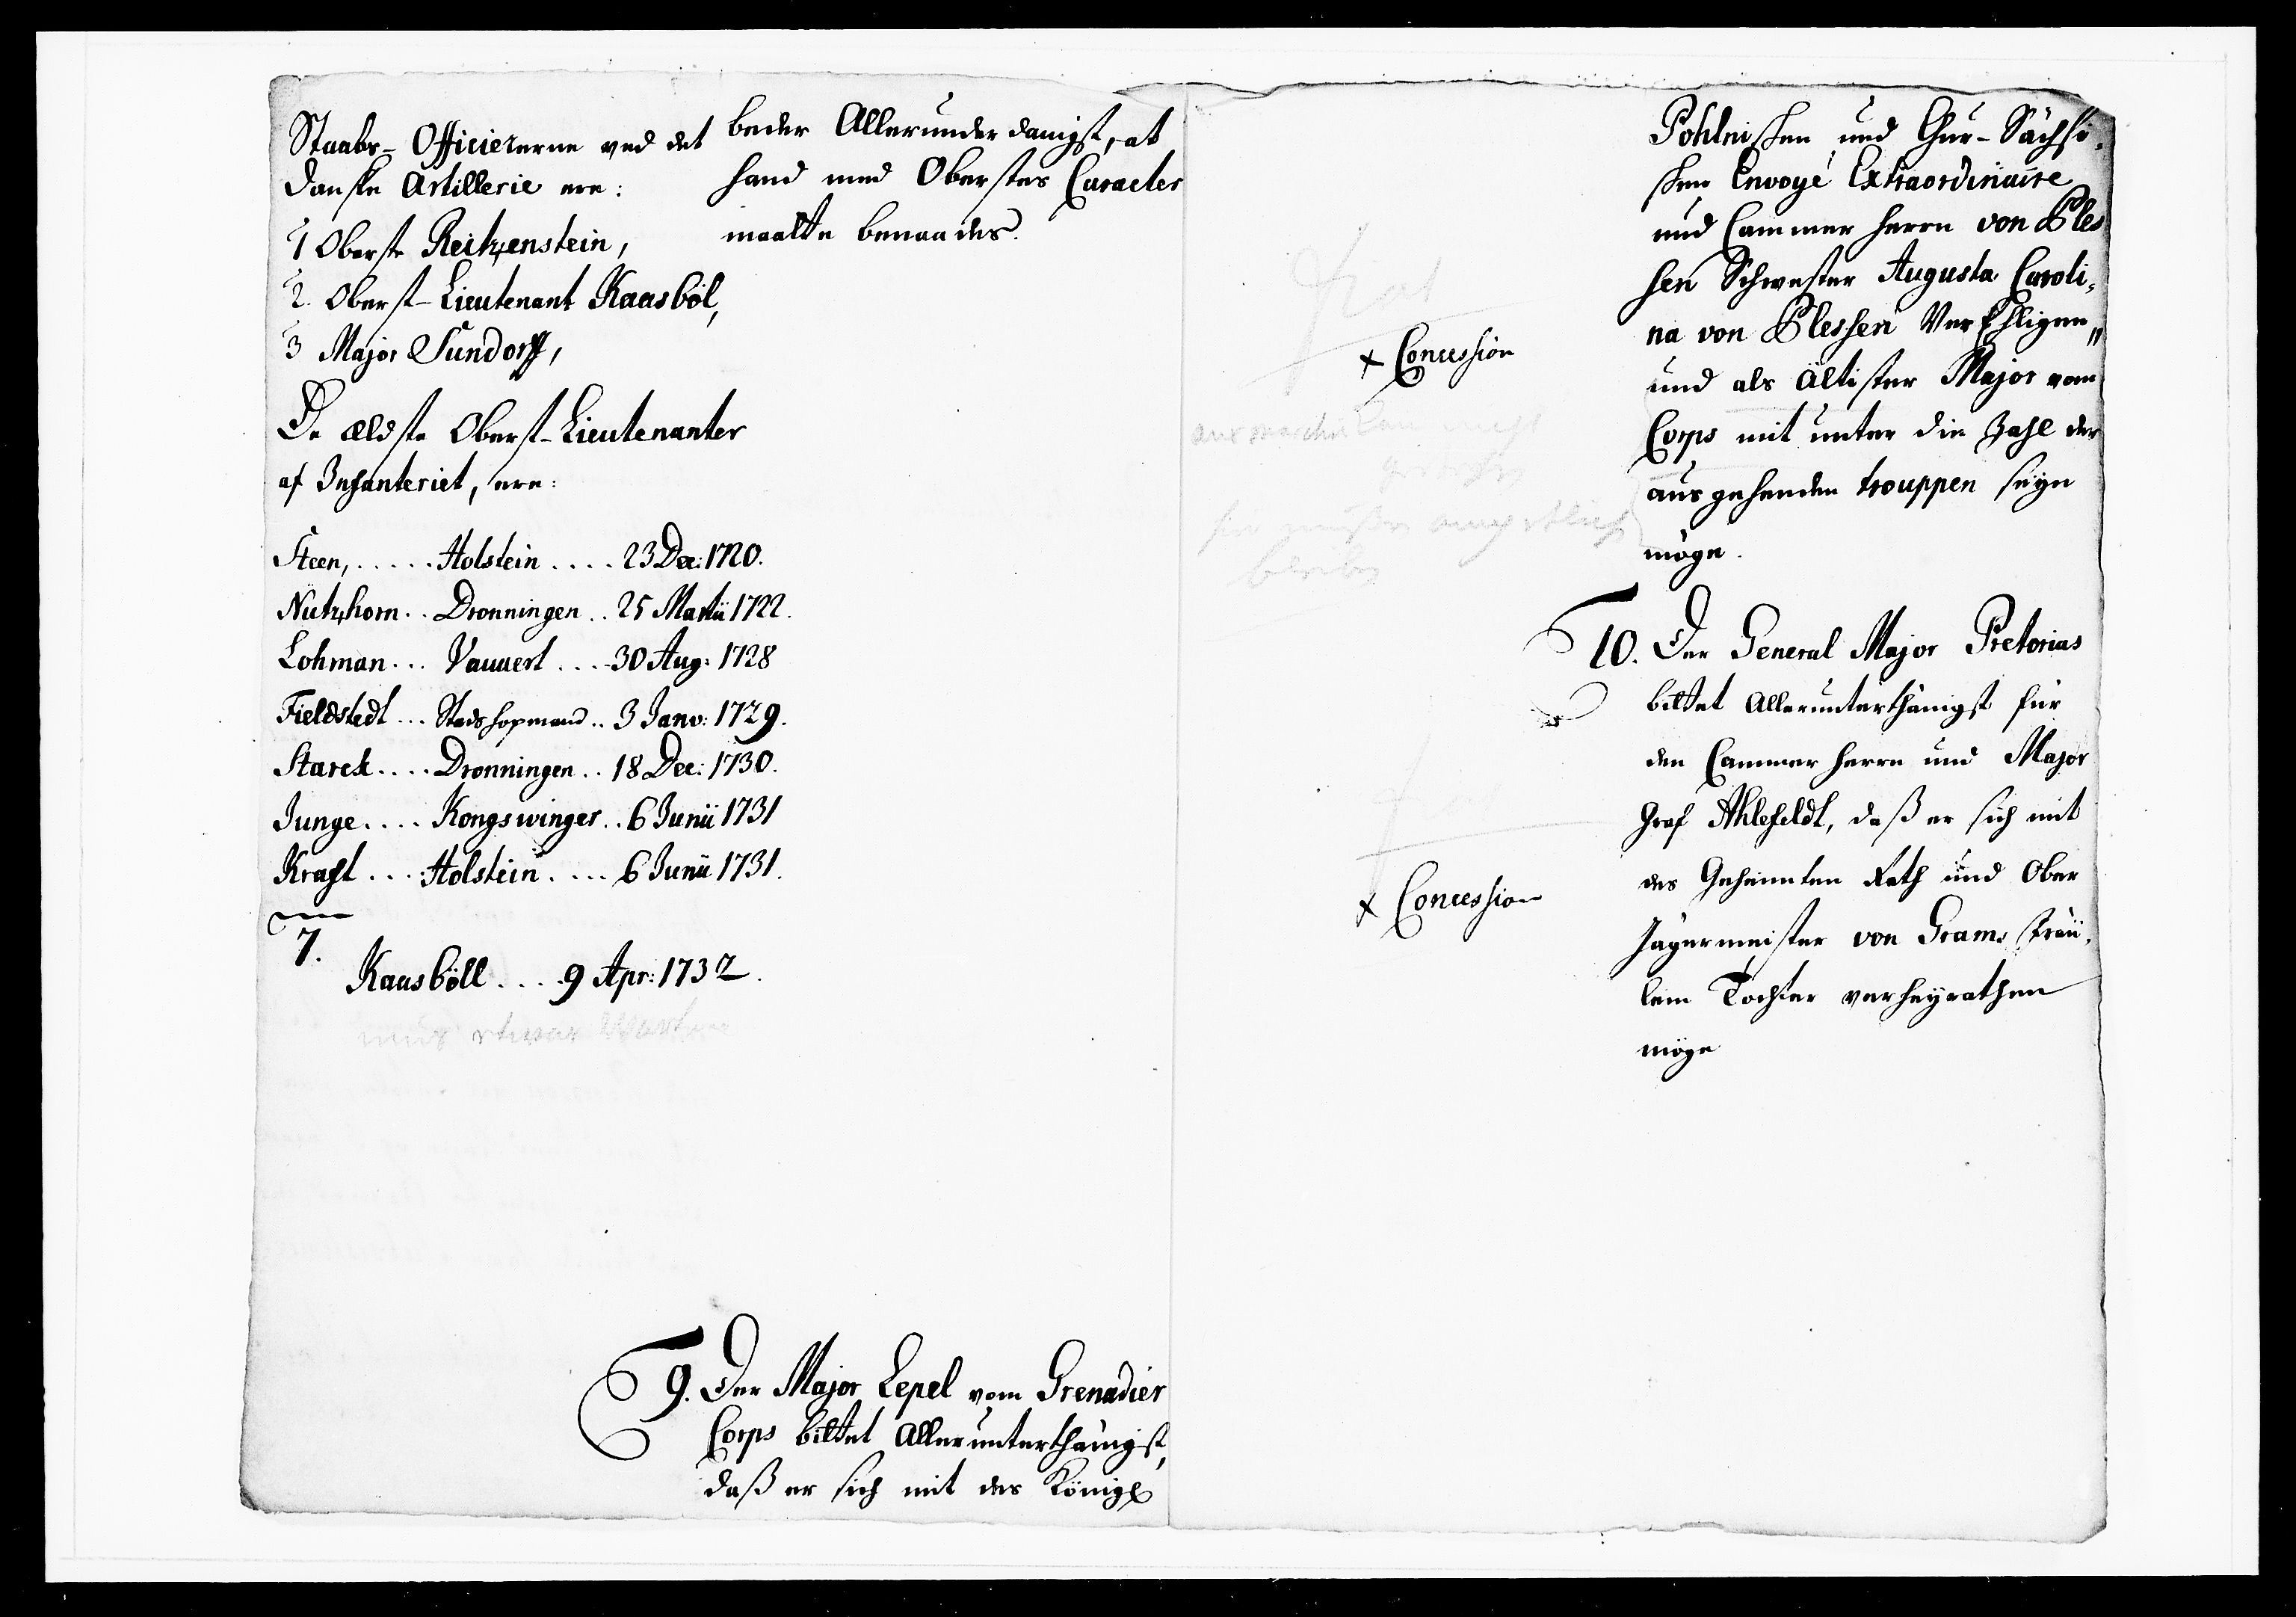 Staabs-Officiererne ved det
danske Artillerie ere:
1 Oberste Reitzenstein,
2. Oberst-Lieutenant Kaasböl,
3 Major Sundorff,
De ældste Oberst-Lieutenanter
af Infanteriet, ere:
Steen, ..... Holstein .... 23 Dec: 1720.
Nutzhorn .. Dronningen .. 25 Martii 1722.
Lohman ... Vauuert .... 30 Aug: 1728
Fieldstedt ... Stadshopmand .. 3 Janv: 1729.
Starck .... Dronningen .. 18 Dec: 1730.
Junge .... Kongswinger .. 6 Junii 1731
Kraft .... Holstein .... 6 Junii 1731.
7.
Kaasböll .... 9 Apr: 1732.
mus etwas warten
beder Allerunderdanigst, at
hand med Oberstes Caracter
maatte benaades.
9. Der Major Lepel vom Grenadier
Corps bittet Allerunterthänigst,
daß er sich mit des Königl
Pohlnischen und Chur-Sächsi-
schen Envoyé Extraordinaire
und Cammerherrn von Ples
sen Schwester Augusta Caroli-
na von Plessen VerEhligen,,
und als ältister Major vom
Corps mit unter die Zahl der
ausgehenden trouppen seyn
möge.
fiat
x Concession
aus marchiren kan nicht
bleiben
10. Der General Major Pretorius
bittet Allerunterthänigst für
den Cammerherrn und Major
Graf Ahlefeldt, daß er sich mit
des Geheimten Rath und Ober
Jägermeister von Grams Fräu-
lein Tochter verheyrathen
möge
x Concession